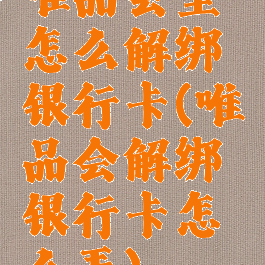 唯品会里
怎么解绑
银行卡(唯
品会解绑
银行卡怎
么弄)